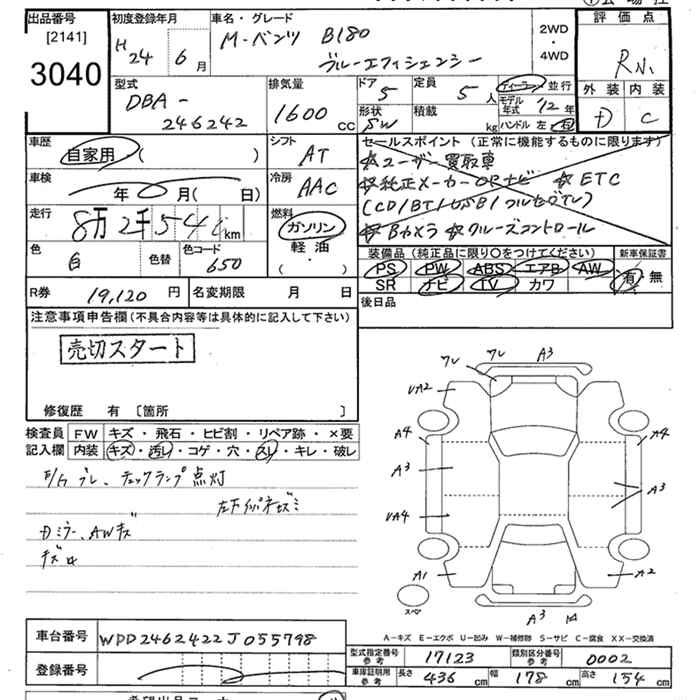 出品番号 [2141] 3040
初度登録年月 H24 6月
車名・グレード M-ベンツ B180 ブルーエフィシェンシー
2WD・4WD
評価点
外装 D 内装 C
型式 DBA-246242
排気量 1600 cc
ドア 5 定員 5人
ディーラー・並行
モデル年式 '12年
形状 SW 積載 kg ハンドル 左・右
車歴 自家用 ( )
シフト AT
セールスポイント(正常に機能するものに限ります)
☆ユーザー買取車
☆純正メーカーOPナビ ☆ETC
(CD/BT/USB/フルセグTV)
☆Bカメラ ☆クルーズコントロール
車検 年 月( 日)
冷房 AAC
走行 8万2千544km
燃料 ガソリン 軽油 ( ・ )
色 白 色替 色コード 650
装備品(純正品に限り○をつけてください) 新車保証書
PS PW ABS エアB AW 有・無
SR ナビ TV カワ
R券 19,120円 名変期限 月 日
後日品
注意事項申告欄(不具合内容等は具体的に記入して下さい)
売切スタート
修復歴 有 〔箇所 〕
検査員記入欄 FW キズ・飛石・ヒビ割・リペア跡・×要
内装 キズ・汚れ・コゲ・穴・スレ・キレ・破レ
チェックランプ点灯
Dミラー、AWキズ
ワレ ワレ A3
UA2
A4 A4
A3 A3
UA4
A1 A2
スペ A3
A-キズ E-エクボ U-凹み W-補修跡 S-サビ C-腐食 XX-交換済
車台番号 WDD2462422J055798
型式指定番号 参考 17123 類別区分番号 参考 0002
登録番号
車庫証明用 参考 長さ 436cm 幅 178cm 高さ 154cm